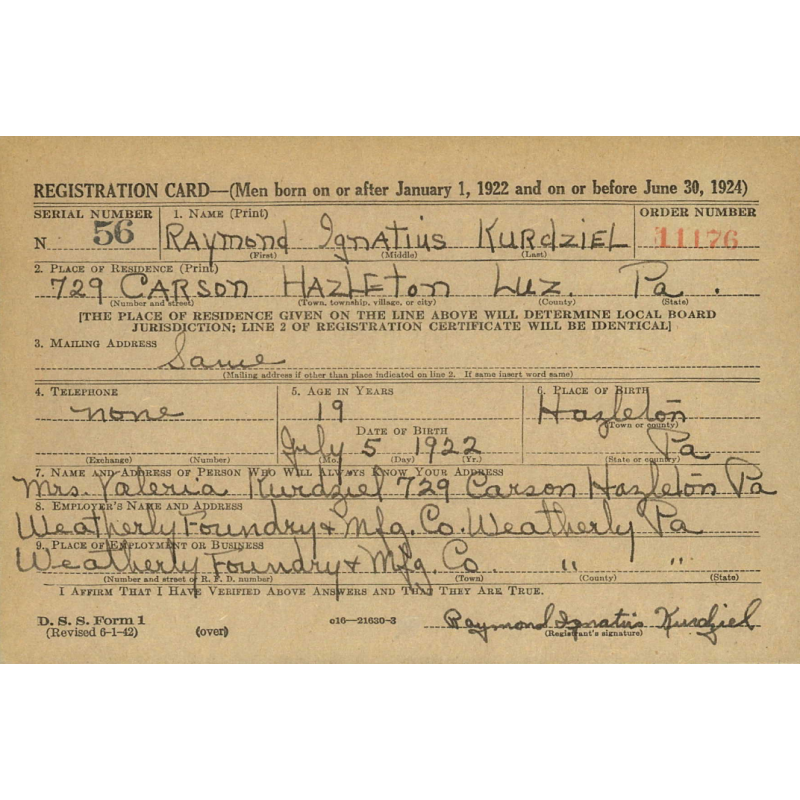 REGISTRATION CARD—(Men born on or after January 1, 1922 and on or before June 30, 1924)
SERIAL NUMBER 1. NAME (Print) ORDER NUMBER
N 56 RAYMOND IGNATIUS KURDZIEL 11176
(First) (Middle) (Last)
2. PLACE OF RESIDENCE (Print)
729 CARSON HAZLETON LUZ. Pa.
(Number and street) (Town, township, village, or city) (County) (State)
[THE PLACE OF RESIDENCE GIVEN ON THE LINE ABOVE WILL DETERMINE LOCAL BOARD
JURISDICTION; LINE 2 OF REGISTRATION CERTIFICATE WILL BE IDENTICAL]
3. MAILING ADDRESS
Same
(Mailing address if other than place indicated on line 2. If same insert word same)
4. TELEPHONE 5. AGE IN YEARS 6. PLACE OF BIRTH
none 19 Hazleton
(Town or county)
DATE OF BIRTH
July 5 1922 Pa
(Exchange) (Number) (Mo.) (Day) (Yr.) (State or country)
7. NAME AND ADDRESS OF PERSON WHO WILL ALWAYS KNOW YOUR ADDRESS
Mrs. Valeria Kurdziel 729 Carson Hazleton Pa
8. EMPLOYER'S NAME AND ADDRESS
Weatherly Foundry & Mfg. Co. Weatherly Pa
9. PLACE OF EMPLOYMENT OR BUSINESS
Weatherly Foundry & Mfg. Co. " "
(Number and street or R. F. D. number) (Town) (County) (State)
I AFFIRM THAT I HAVE VERIFIED ABOVE ANSWERS AND THAT THEY ARE TRUE.
D. S. S. Form 1
(Revised 6-1-42) (over) c16—21630-3 Raymond Ignatius Kurdziel
(Registrant's signature)